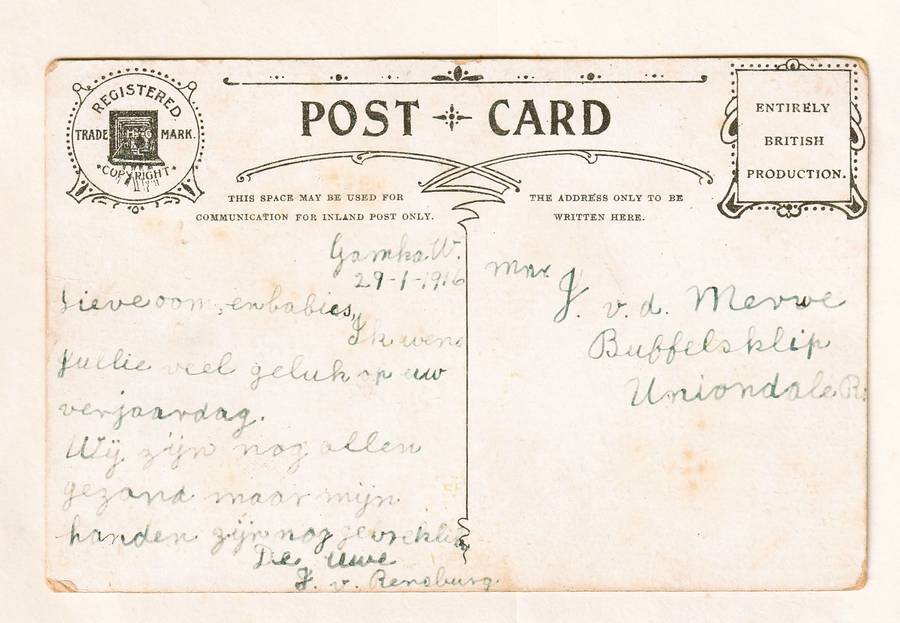 REGISTERED
TRADE MARK.
COPYRIGHT
POST CARD
ENTIRELY
BRITISH
PRODUCTION.
THIS SPACE MAY BE USED FOR
COMMUNICATION FOR INLAND POST ONLY.
THE ADDRESS ONLY TO BE
WRITTEN HERE.
Gamka W.
29-1-1916
Lieve oom, en babies,
Ik wens
Jullie veel geluk op uw
verjaardag.
Wij zijn nog allen
gezond maar mijn
handen zijn nog
De uwe
J. v. Rensburg.
Mnr J. v. d. Merwe
Buffelsklip
Uniondale